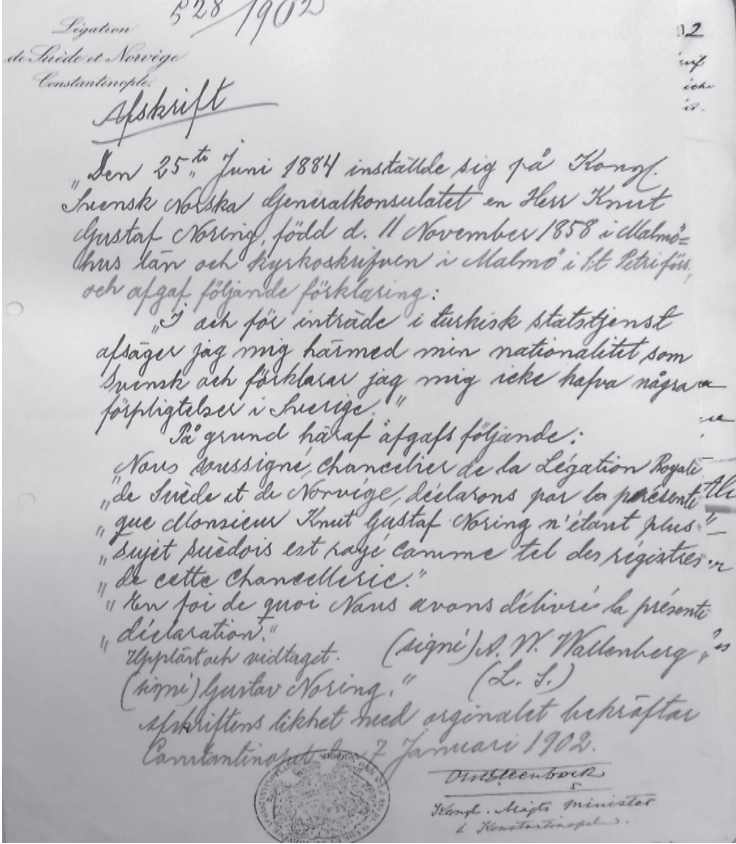 528/1902
Légation
de Suède et Norvège
Constantinople.
Afskrift
„Den 25te Juni 1884 inställde sig på Kongl.
Svensk Norska Generalkonsulatet en Herr Knut
Gustaf Noring, född d. 11 November 1858 i Malmö=
hus län och kyrkoskrifven i Malmö i St Petri förs,
och afgaf följande förklaring:
„I och för inträde i turkisk statstjenst
afsäger jag mig härmed min nationalitet som
Svensk och förklarar jag mig icke hafva några
förpligtelser i Sverige."
På grund häraf afgafs följande:
„Nous soussigné, Chancelier de la Légation Royale
„de Suède et de Norvège, déclarons par la présente
„que Monsieur Knut Gustaf Noring n'étant plus
„sujet suèdois est rayé comme tel des régistres
„de cette Chancellerie."
„En foi de quoi Nous avons délivré la présente
„déclaration."
Uppläst och vidtaget. (signé) A. W. Wallenberg."
(signé) Gustav Noring." (L. S.)
Afskriftens likhet med orginalet bekräftar
Constantinopel den 7 Januari 1902.
Steenbock
Kongl. Majts minister
i Konstantinopel.